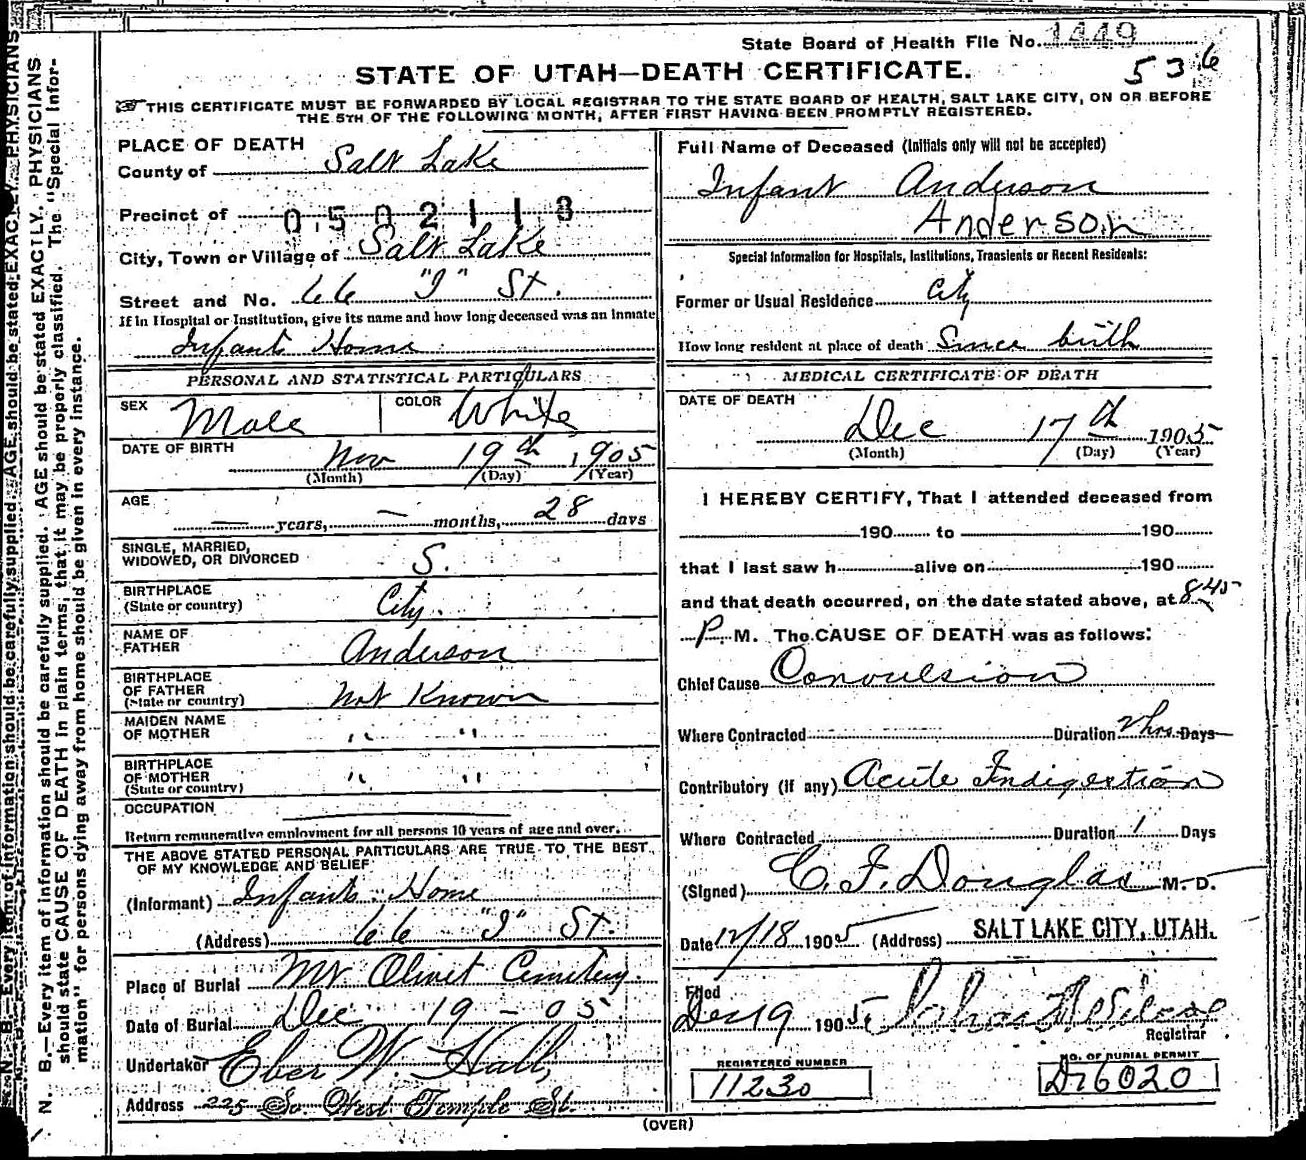 State Board of Health File No. 1449
536
STATE OF UTAH—DEATH CERTIFICATE.
THIS CERTIFICATE MUST BE FORWARDED BY LOCAL REGISTRAR TO THE STATE BOARD OF HEALTH, SALT LAKE CITY, ON OR BEFORE
THE 5TH OF THE FOLLOWING MONTH, AFTER FIRST HAVING BEEN PROMPTLY REGISTERED.
PLACE OF DEATH
County of Salt Lake
Precinct of 0502118
City, Town or Village of Salt Lake
Street and No. 66 "I" St.
If in Hospital or Institution, give its name and how long deceased was an inmate
Infants Home
PERSONAL AND STATISTICAL PARTICULARS
SEX Male COLOR White
DATE OF BIRTH Nov 19th 1905
(Month) (Day) (Year)
AGE — years, — months, 28 days
SINGLE, MARRIED,
WIDOWED, OR DIVORCED S.
BIRTHPLACE
(State or country) City.
NAME OF
FATHER Anderson
BIRTHPLACE
OF FATHER
(State or country) Not Known
MAIDEN NAME
OF MOTHER " "
BIRTHPLACE
OF MOTHER
(State or country) " "
OCCUPATION
Return remunerative employment for all persons 10 years of age and over.
THE ABOVE STATED PERSONAL PARTICULARS ARE TRUE TO THE BEST
OF MY KNOWLEDGE AND BELIEF
(Informant) Infants Home
(Address) 66 "I" St.
Place of Burial Mt Olivet Cemetery.
Date of Burial Dec 19 - 05
Undertaker Eber W. Hall,
Address 225 So West Temple St.
Full Name of Deceased (Initials only will not be accepted)
Infant Anderson
Anderson
Special Information for Hospitals, Institutions, Transients or Recent Residents:
Former or Usual Residence City
How long resident at place of death Since birth
MEDICAL CERTIFICATE OF DEATH
DATE OF DEATH
Dec 17th 1905
(Month) (Day) (Year)
I HEREBY CERTIFY, That I attended deceased from
190 to 190
that I last saw h alive on 190
and that death occurred, on the date stated above, at 8 45
P. M. The CAUSE OF DEATH was as follows:
Chief Cause Convulsion
Where Contracted Duration 2 hrs. Days
Contributory (if any) Acute Indigestion
Where Contracted Duration 1 Days
(Signed) C. F. Douglas M. D.
Date 12/18 1905 (Address) SALT LAKE CITY, UTAH.
Filed
Dec 19 1905,
Registrar
REGISTERED NUMBER
11230
NO. OF BURIAL PERMIT
D26020
(OVER)
N. B.—Every item of information should be carefully supplied. AGE should be stated EXACTLY. PHYSICIANS
should state CAUSE OF DEATH in plain terms, that it may be properly classified. The "Special Infor-
mation" for persons dying away from home should be given in every instance.
N. B.—Every item of information should be carefully supplied. AGE should be stated EXACTLY. PHYSICIANS